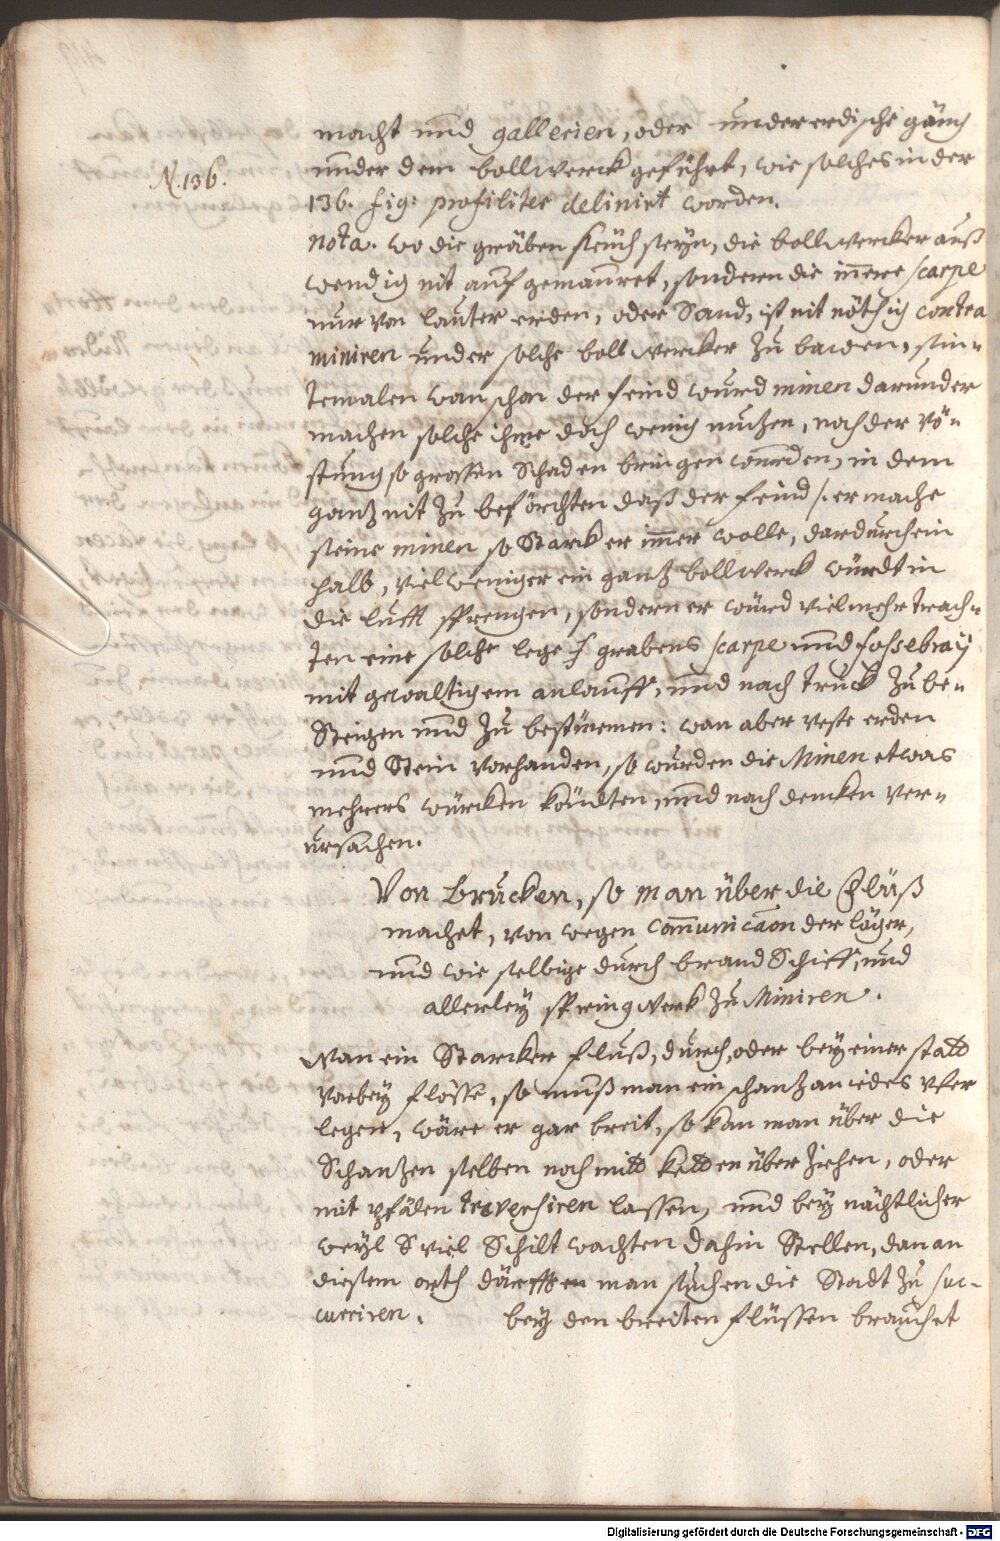 macht und gallerien, oder undererdische gäng
under dem bollwerck geführt, wie solches in der
N. 136.
136. fig: profiliter delinirt worden.
nota. wo die gräben feücht seyn, die bollwercker auß
wendig nit auf gemauret, sondern die innere scarpe
nur von lauter erden, oder Sand, ist nit nöthig contra
miniren under solche bollwercker zu bawen, sin=
temalen wan schon der feind wurd minen darunder
machen solche ihme doch wenig nuzen, noch der vö=
stung so grossen Schaden bringen wurden, in dem
ganz nit zu beförchten daß der feind /: er mache
seine minen so Starck er immer wolle, dardurch ein
halb, viel weniger ein gantz bollwerck würdt in
die lufft sprengen, sondern er würd vielmehr trach=
ten eine solche lege grabens scarpe und fossebray
mit gewaltigem anlauff, und nach truck zu be=
Steigen und zu bestürmen: wan aber veste erden
und Stein vorhanden, so wurden die Minen etwas
mehrers würcken köndten, und nach dencken ver=
ursachen.
Von Brucken, so man über die Flüß
machet, von wegen communicaon der läger,
und wie selbige durch brand Schiff, und
allerley springwerk zu Miniren.
Wan ein Starcker fluß, durch, oder bey einer statt
vorbey flösse, so muß man ein schantz an iedes vfer
legen, wäre er gar breit, so kan man über die
Schantzen selben noch mitt ketten über ziehen, oder
mit pfälen traversiren lassen, und bey nächtlicher
weyl viel Schiltwachten dahin Stellen, dan an
diesem orth därfften man suchen die Stadt zu suc=
curriren. bey den breiten flüssen brauchet
Digitalisierung gefördert durch die Deutsche Forschungsgemeinschaft - DFG